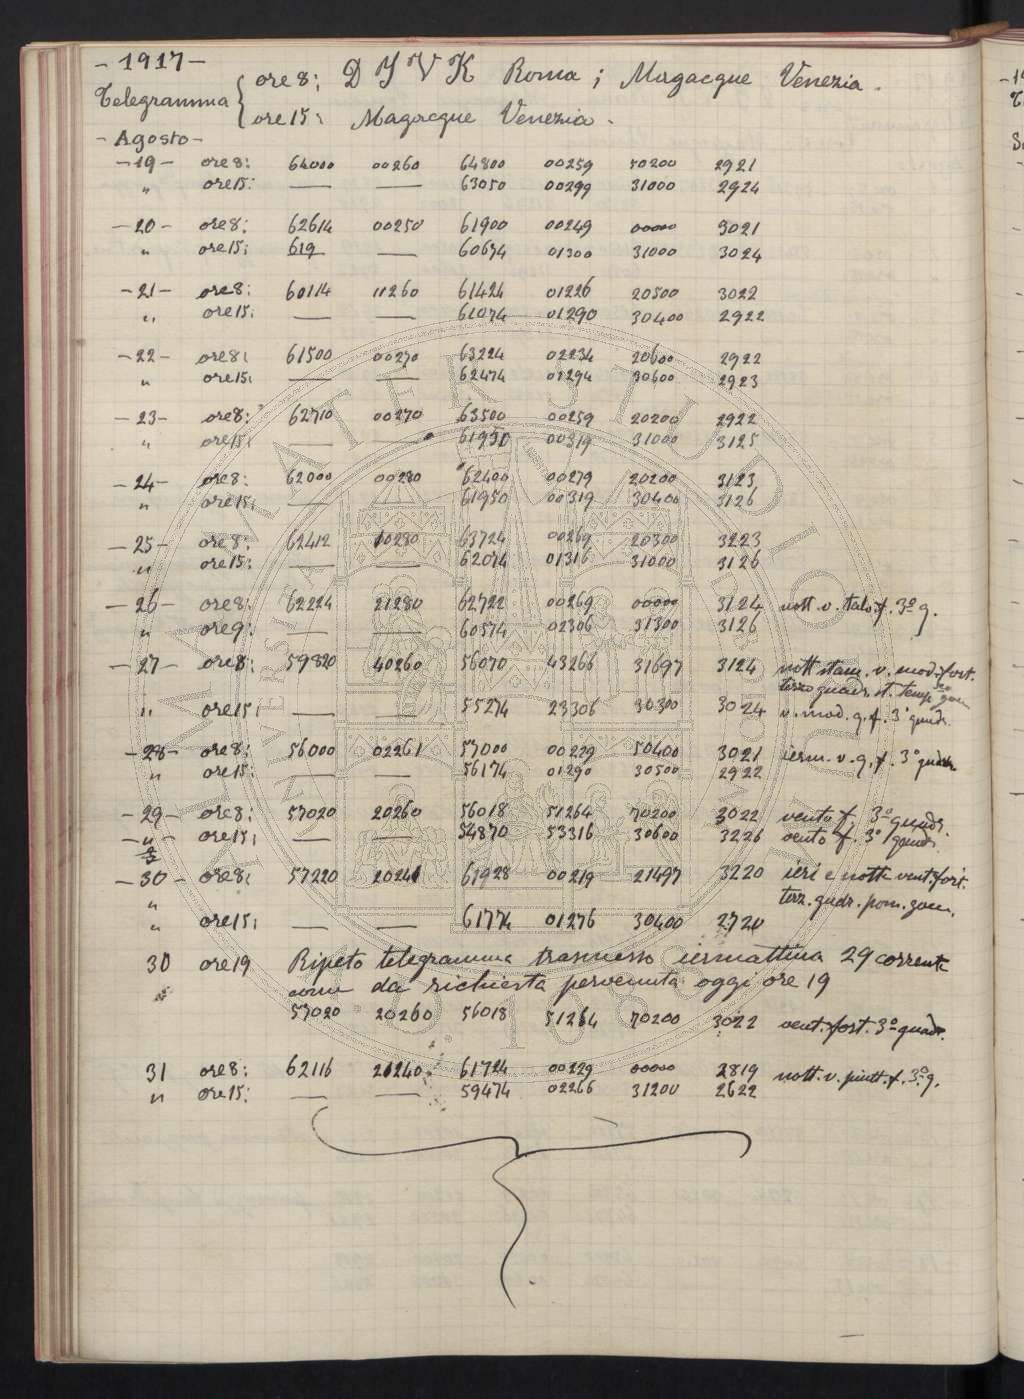 - 1917 -
Telegramma { ore 8: D I V K Roma ; Magacque Venezia .
ore 15: Magacque Venezia .
- Agosto -
- 19 - ore 8: 64000 00260 64800 00259 50200 2921
" ore 15: — — 63050 00299 31000 2924
- 20 - ore 8: 62614 00250 61900 00249 00000 3021
" ore 15: 619 — 60674 01300 31000 3024
- 21 - ore 8: 60114 11260 61424 01226 20500 3022
" ore 15: — — 61074 01290 30400 2922
- 22 - ore 8: 61500 00270 63224 02234 20600 2922
" ore 15: — — 62474 01294 30600 2923
- 23 - ore 8: 62710 00270 63500 00259 20200 2922
" ore 15: — — 61950 00319 31000 3125
- 24 - ore 8: 62000 00280 62400 00279 20200 3123
" ore 15: — 61950 00319 30400 3126
- 25 - ore 8: 62412 10280 63724 00269 20300 3223
" ore 15: — — 62074 01316 31000 3126
- 26 - ore 8: 62224 21280 62722 00269 00000 3124 nott. v. talo. f. 3º q.
" ore 9: — — 60574 02306 31300 3126
- 27 - ore 8: 59820 40260 56070 43266 31697 3124 nott. stam. v. mod. fort.
terzo quadr. st. temp.
" ore 15: — — 55274 23306 30300 3024 v. mod. q. f. 3º quadr.
- 28 - ore 8: 56000 02261 57000 00229 50400 3021 ierm. v. q. f. 3º quadr.
" ore 15: — — 56174 01290 30500 2922
- 29 - ore 8: 57020 20260 56018 51264 70200 3022 vento f. 3º quadr.
- " - ore 15: — — 54870 53316 30600 3226 vento f. 3º quadr.
- 30 - ore 8: 57220 20241 61928 00219 21497 3220 ieri e notte vent. fort.
" terz. qudr. pom.
" ore 15: — — 61774 01276 30400 2720
30 ore 19 Ripeto telegramma trasmesso iermattina 29 corrente
come da richiesta pervenuta oggi ore 19
57020 20260 56018 51264 70200 3022 vent. fort. 3º quadr.
31 ore 8: 62116 21240 61724 00229 00000 2819 nott. v. piutt. f. 3º q.
" ore 15: — — 59474 02266 31200 2622